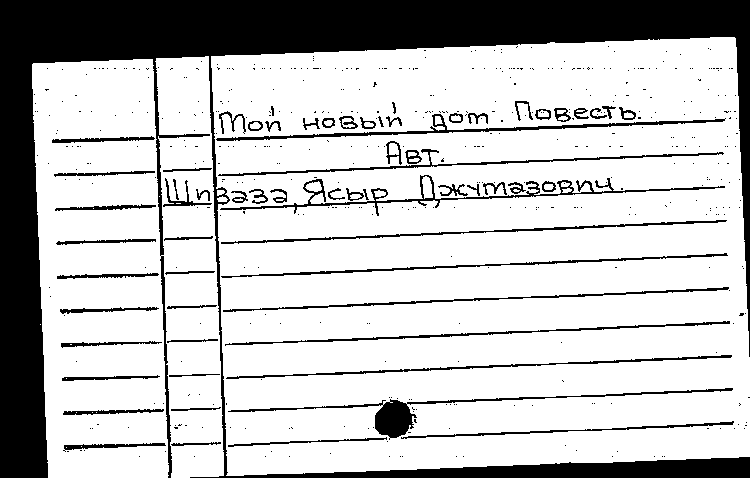 Мой новый дом. Повесть.
Авт.
Шиваза, Ясыр Джумазович.